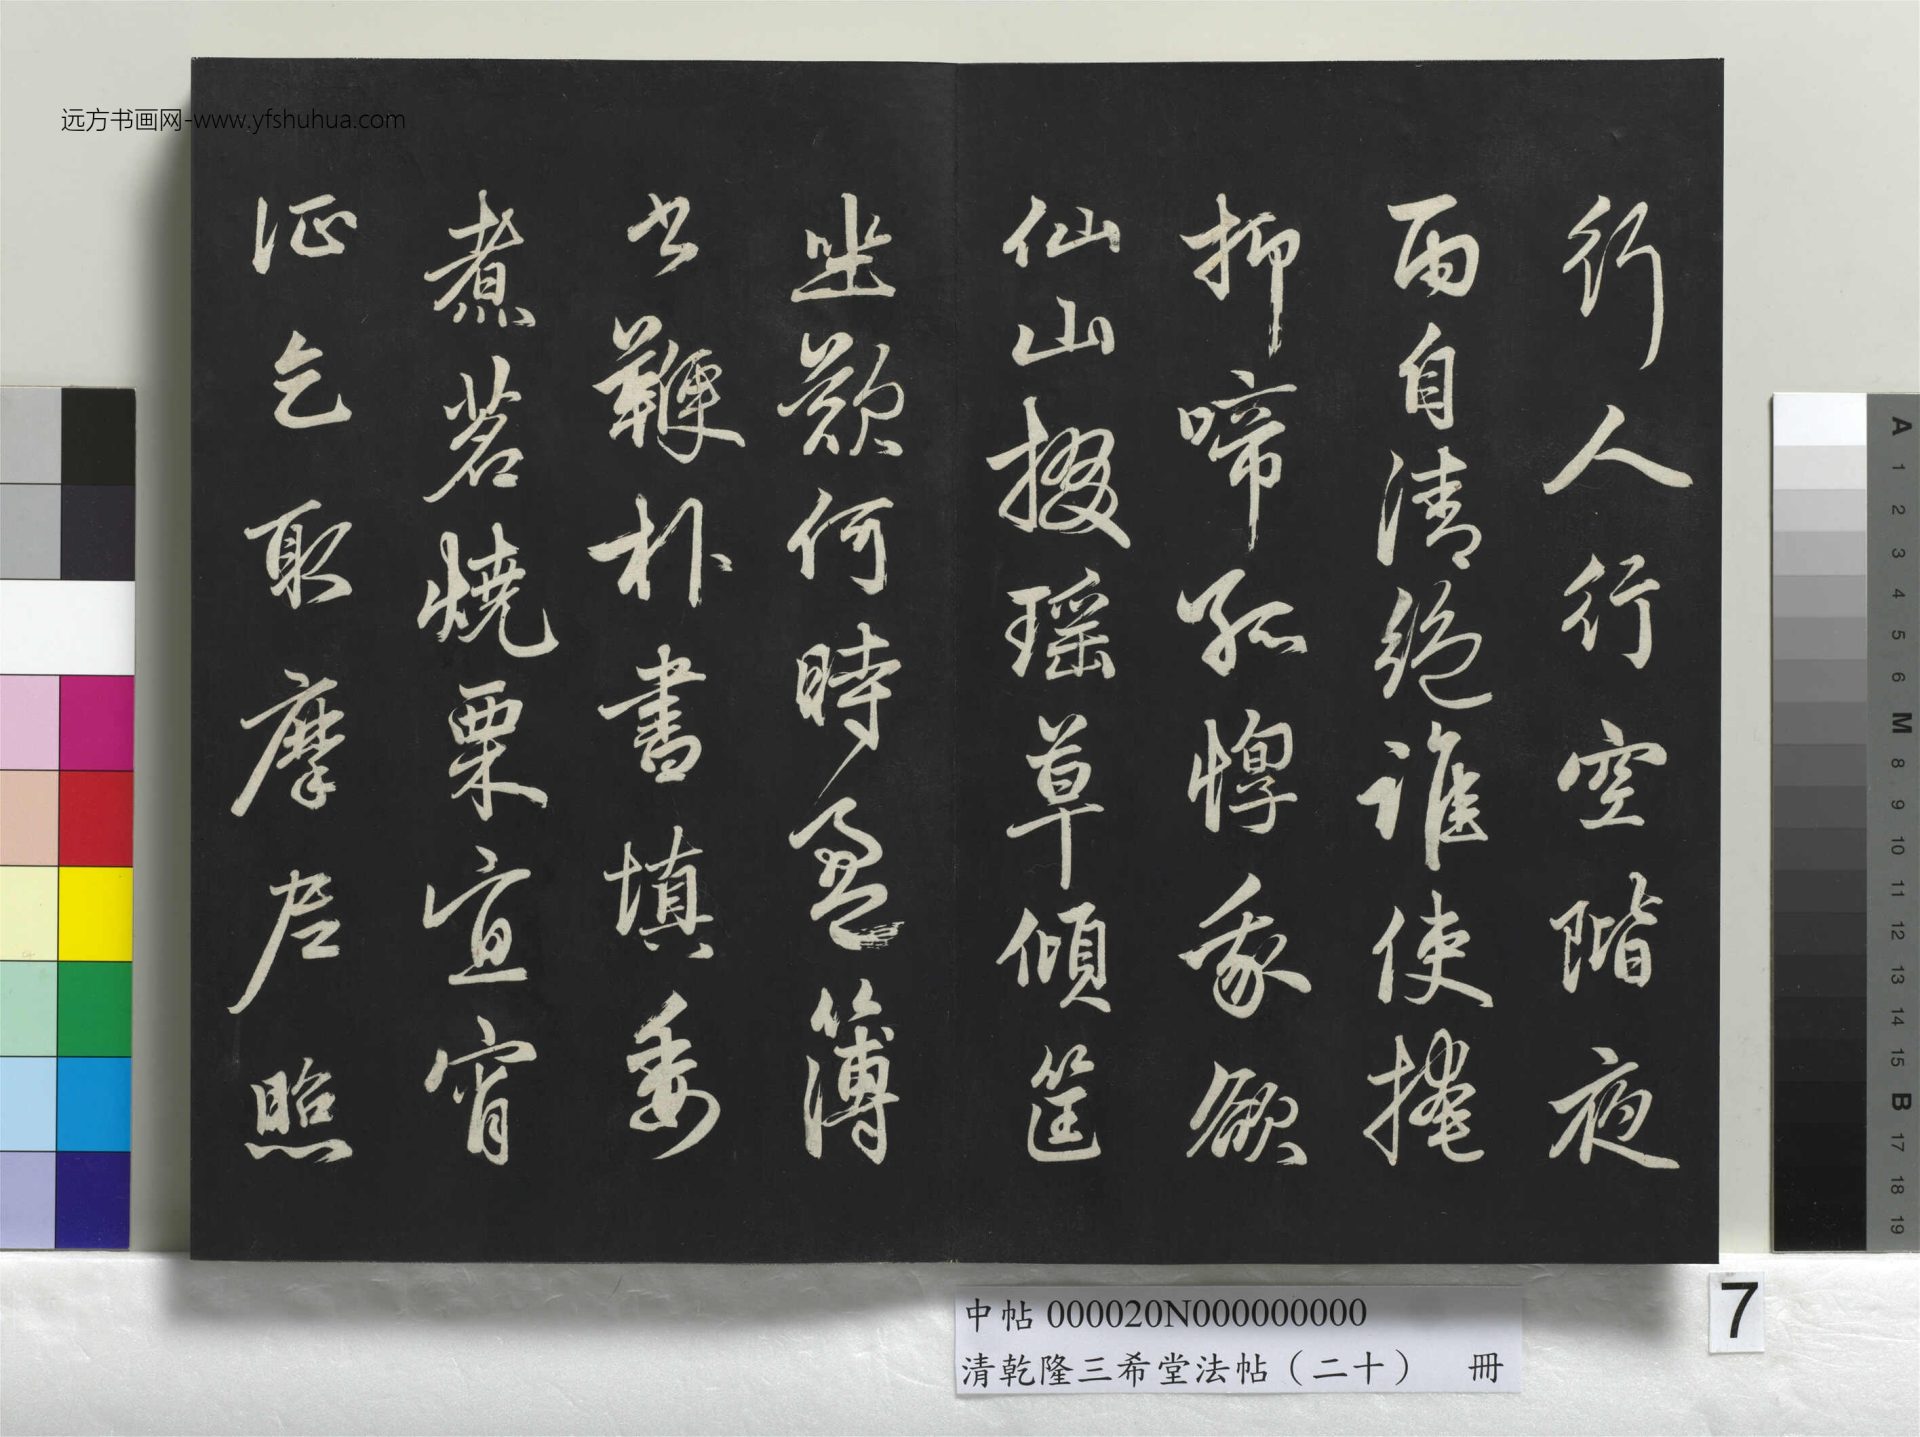 远方书画网-www.yfshuhua.com
行人行空階夜
雨自清絶誰使掩
抑啼孤惸我欲
仙山掇瑶草傾筐
坐歎何時盈簿
書鞭朴晝填委
煮茗燒栗宜宵
征乞取摩尼照
中帖 000020N000000000
清乾隆三希堂法帖（二十） 冊
7
A
1
2
3
4
5
6
M
8
9
10
11
12
13
14
15
B
17
18
19